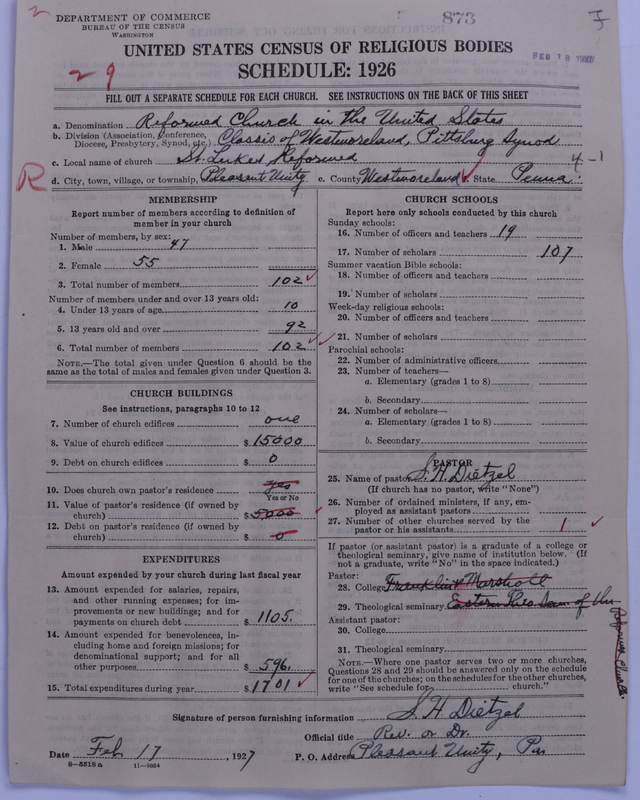 2
DEPARTMENT OF COMMERCE
BUREAU OF THE CENSUS
WASHINGTON
873
UNITED STATES CENSUS OF RELIGIOUS BODIES
SCHEDULE: 1926
29
FILL OUT A SEPARATE SCHEDULE FOR EACH CHURCH. SEE INSTRUCTIONS ON THE BACK OF THIS SHEET
a. Denomination Reformed Church in the United States
b. Division (Association, Conference, Diocese, Presbytery, Synod, etc.) Classis of Westmoreland, Pittsburg Synod
c. Local name of church St. Lukes Reformed
4-1
R
d. City, town, village, or township, Pleasant Unity e. County Westmoreland f. State Penna.
MEMBERSHIP
Report number of members according to definition of
member in your church
Number of members, by sex:
1. Male 47
2. Female 55
3. Total number of members 102
Number of members under and over 13 years old:
4. Under 13 years of age 10
5. 13 years old and over 92
6. Total number of members 102
NOTE.—The total given under Question 6 should be
same as the total of males and females given under Question 3.
CHURCH BUILDINGS
See instructions, paragraphs 10 to 12
7. Number of church edifices one
8. Value of church edifices $ 15000
9. Debt on church edifices $ 0
10. Does church own pastor's residence yes
Yes or No
11. Value of pastor's residence (if owned by
church) $ 5000
12. Debt on pastor's residence (if owned by
church) $ 0
EXPENDITURES
Amount expended by your church during last fiscal year
13. Amount expended for salaries, repairs,
and other running expenses; for im-
provements or new buildings; and for
payments on church debt $ 1105.
14. Amount expended for benevolences, in-
cluding home and foreign missions; for
denominational support; and for all
other purposes $ 596.
15. Total expenditures during year $ 1701
CHURCH SCHOOLS
Report here only schools conducted by this church
Sunday schools:
16. Number of officers and teachers 19
17. Number of scholars 107
Summer vacation Bible schools:
18. Number of officers and teachers
19. Number of scholars
Week-day religious schools:
20. Number of officers and teachers
21. Number of scholars
Parochial schools:
22. Number of administrative officers
23. Number of teachers—
a. Elementary (grades 1 to 8)
b. Secondary
24. Number of scholars—
a. Elementary (grades 1 to 8)
b. Secondary
PASTOR
25. Name of pastor S. H. Dietzel
(If church has no pastor, write "None")
26. Number of ordained ministers, if any, em-
ployed as assistant pastors
27. Number of other churches served by the
pastor or his assistants 1
If pastor (or assistant pastor) is a graduate of a college or
theological seminary, give name of institution below. (If
not a graduate, write "No" in the space indicated.)
Pastor:
28. College Franklin & Marshall
29. Theological seminary Eastern Theo. Sem of the
Reformed Church.
Assistant pastor:
30. College
31. Theological seminary
NOTE.—Where one pastor serves two or more churches,
Questions 28 and 29 should be answered only on the schedule
for one of the churches; on the schedules for the other churches,
write "See schedule for church."
Signature of person furnishing information S. H. Dietzel
Official title Rev. or Dr.
Date Feb 17, 1927 P. O. Address Pleasant Unity, Pa
8-5518 a 11-9054